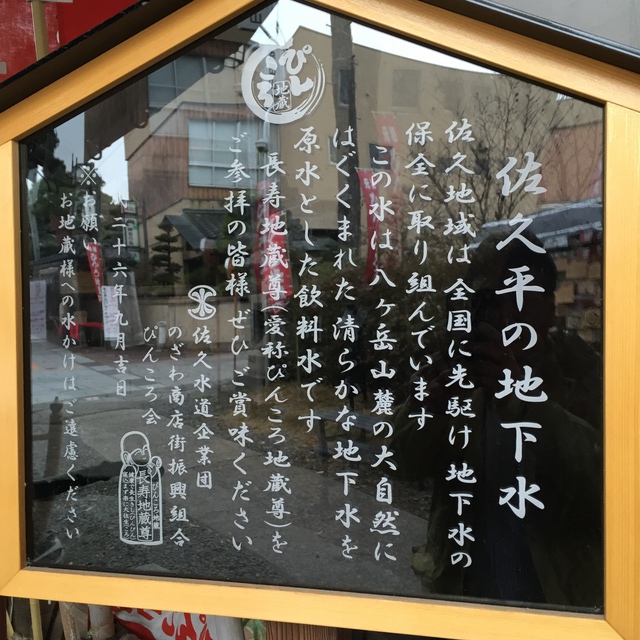 佐久平の地下水
佐久地域は全国に先駆け地下水の
保全に取り組んでいます
この水は八ヶ岳山麓の大自然に
はぐくまれた清らかな地下水を
原水とした飲料水です
長寿地蔵尊(愛称ぴんころ地蔵尊)を
ご参拝の皆様ぜひご賞味ください
佐久水道企業団
のざわ商店街振興組合
ぴんころ会
二十六年九月吉日
※お願い
お地蔵様への水かけはご遠慮ください
ぴんころ
地蔵
長寿地蔵尊